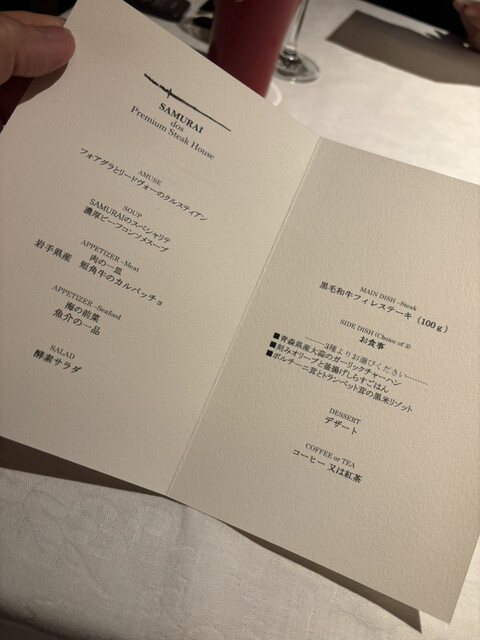 SAMURAI
dos
Premium Steak House
AMUSE
フォアグラとリードヴォーのクルスティアン
SOUP
SAMURAIのスペシャリテ
濃厚ビーフコンソメスープ
APPETIZER –Meat
肉の一皿
岩手県産 短角牛のカルパッチョ
APPETIZER –Seafood
海の前菜
魚介の一品
SALAD
酵素サラダ
MAIN DISH –Steak
黒毛和牛フィレステーキ（100g）
SIDE DISH (Choice of 3)
お食事
………3種よりお選びください………
■青森県産大蒜のガーリックチャーハン
■刻みオリーブと釜揚げしらすごはん
■ポルチーニ茸とトランペット茸の黒米リゾット
DESSERT
デザート
COFFEE or TEA
コーヒー 又は紅茶